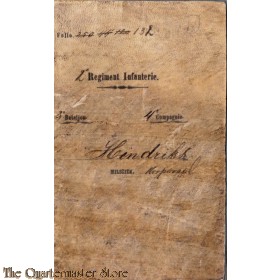 Folio. 132
2e Regiment Infanterie.
Bataljon. 4e Compagnie.
Hendriks
MILICIEN. Korporaal
© The Quartermaster Store